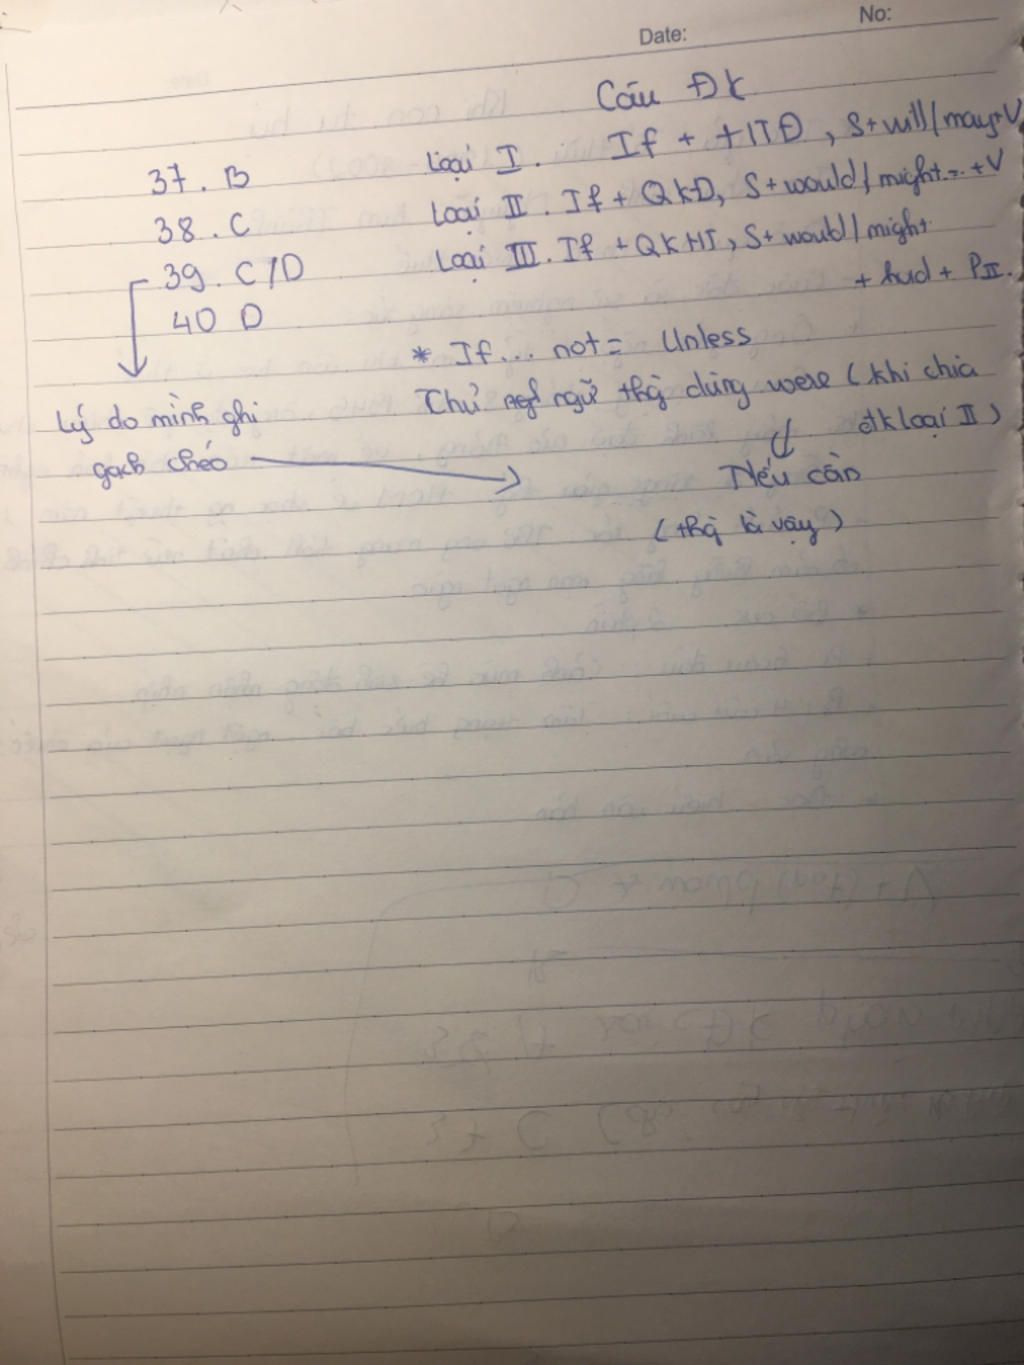 Date:
No:
Câu ĐK
37. B
38. C
39. C/D
40 D
Loại I. If + HTĐ, S+will/may+V
Loại II. If + QKĐ, S+would/might...+V
Loại III. If + QKHT, S+ would/might
+ had + PII.
* If... not = Unless
Chủ ngữ thg dùng were (khi chia
đk loại II)
Nếu cần
(thg là vậy)
Lý do mình ghi
gạch chéo